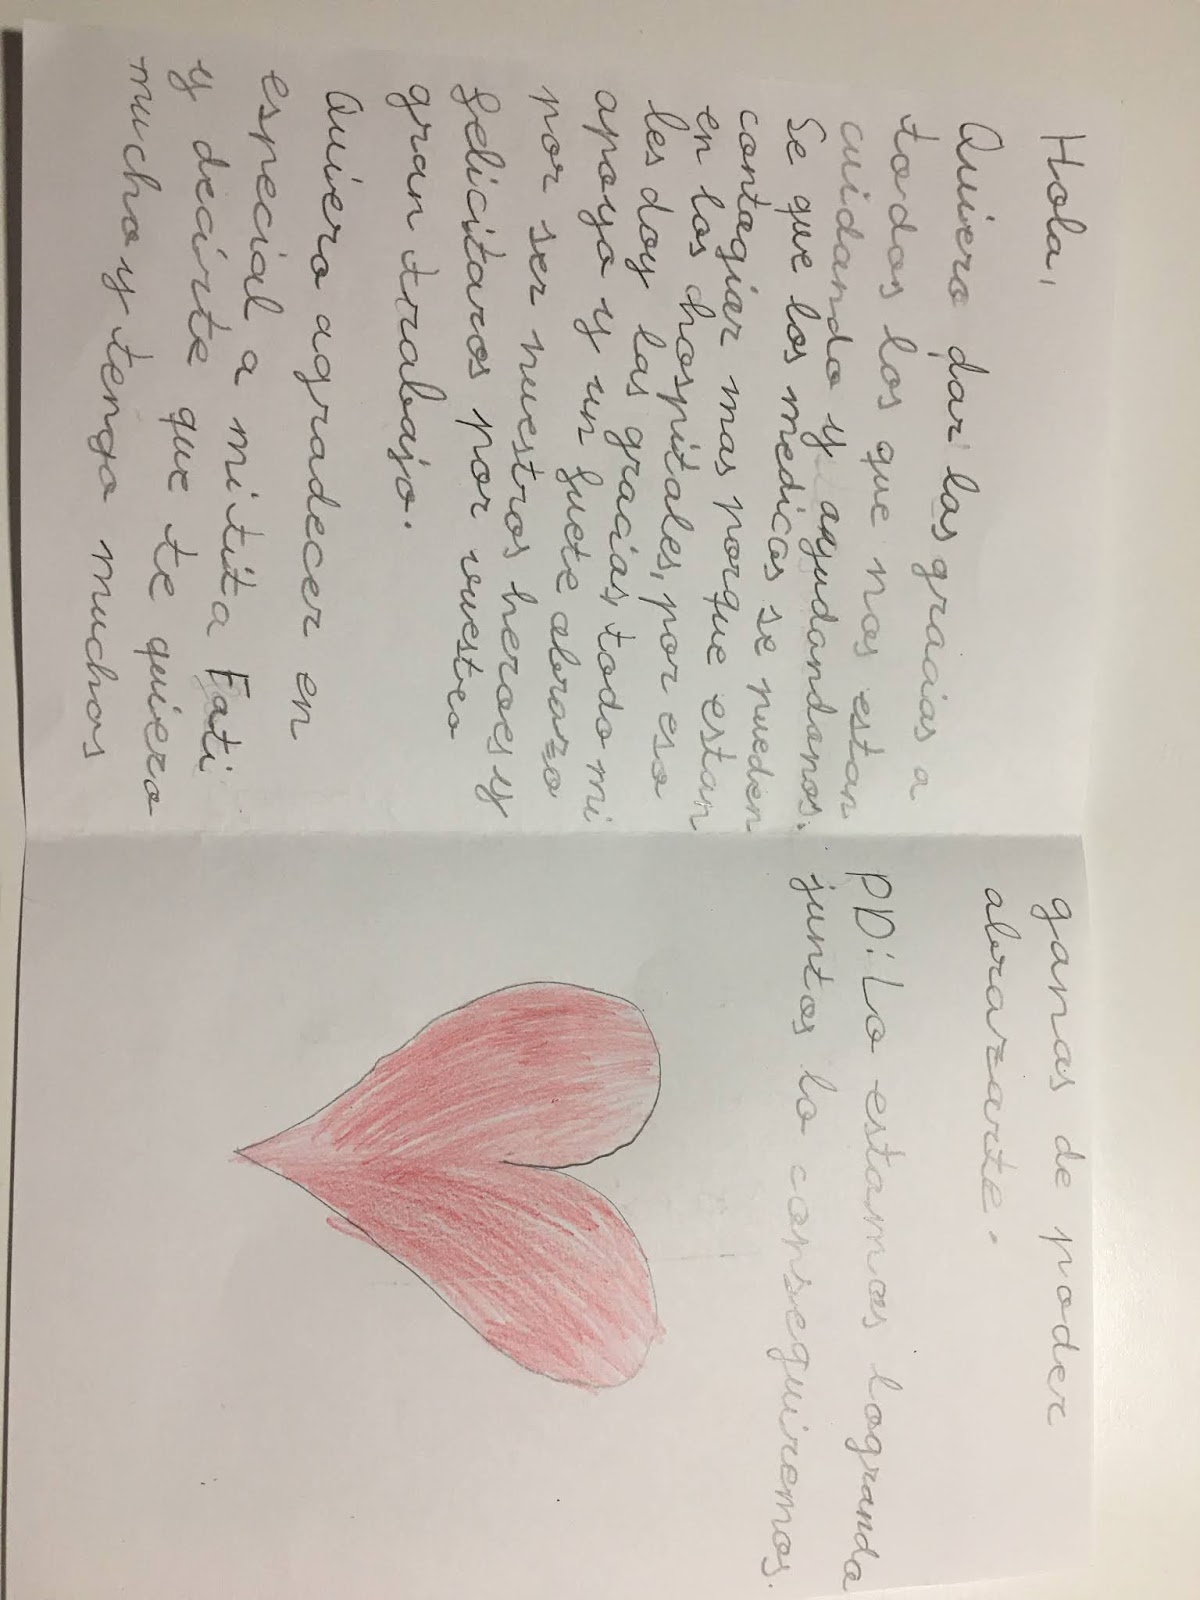 Hola,
Quiero dar las gracias a
todos los que nos estan
cuidando y ayudandonos.
Se que los medicos se pueden
contagiar mas porque estan
en los hospitales, por eso
les doy las gracias, todo mi
apoyo y un fuete abrazo
por ser nuestros heroes y
felicitaros por vuestro
gran trabajo.
Quiero agradecer en
especial a mi tita Fati
y decirte que te quiero
mucho y tengo muchos
ganas de poder
abrazarte.
PD: Lo estamos logrando
juntos lo conseguiremos.